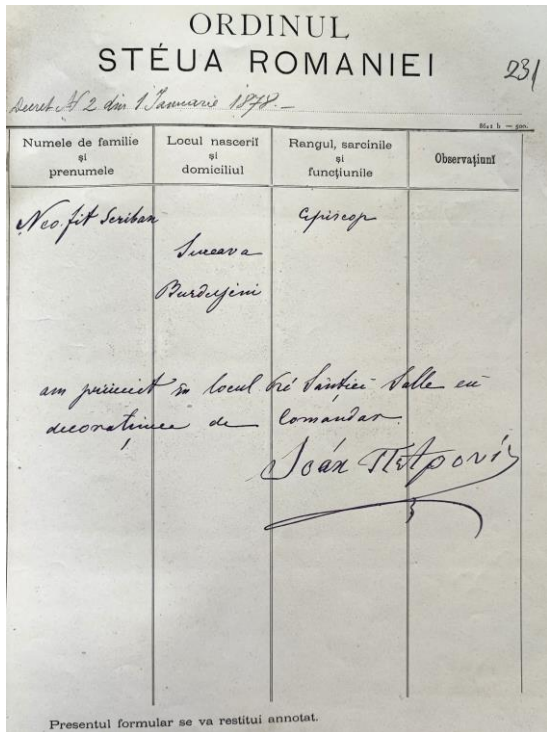 ORDINUL
STÉUA ROMANIEI
231
Decret No 2 din 1 Ianuarie 1878.—
Numele de familie
și
prenumele
Locul nasceriĭ
și
domiciliul
Rangul, sarcinile
și
funcțiunile
Observațiunĭ
Neofit Scriban
Episcop
Suceava
Burdujeni
am primit in locul Pré Sânției Salle cu
decorațiunea de Comandor.
Ioán Петрović
Presentul formular se va restitui annotat.